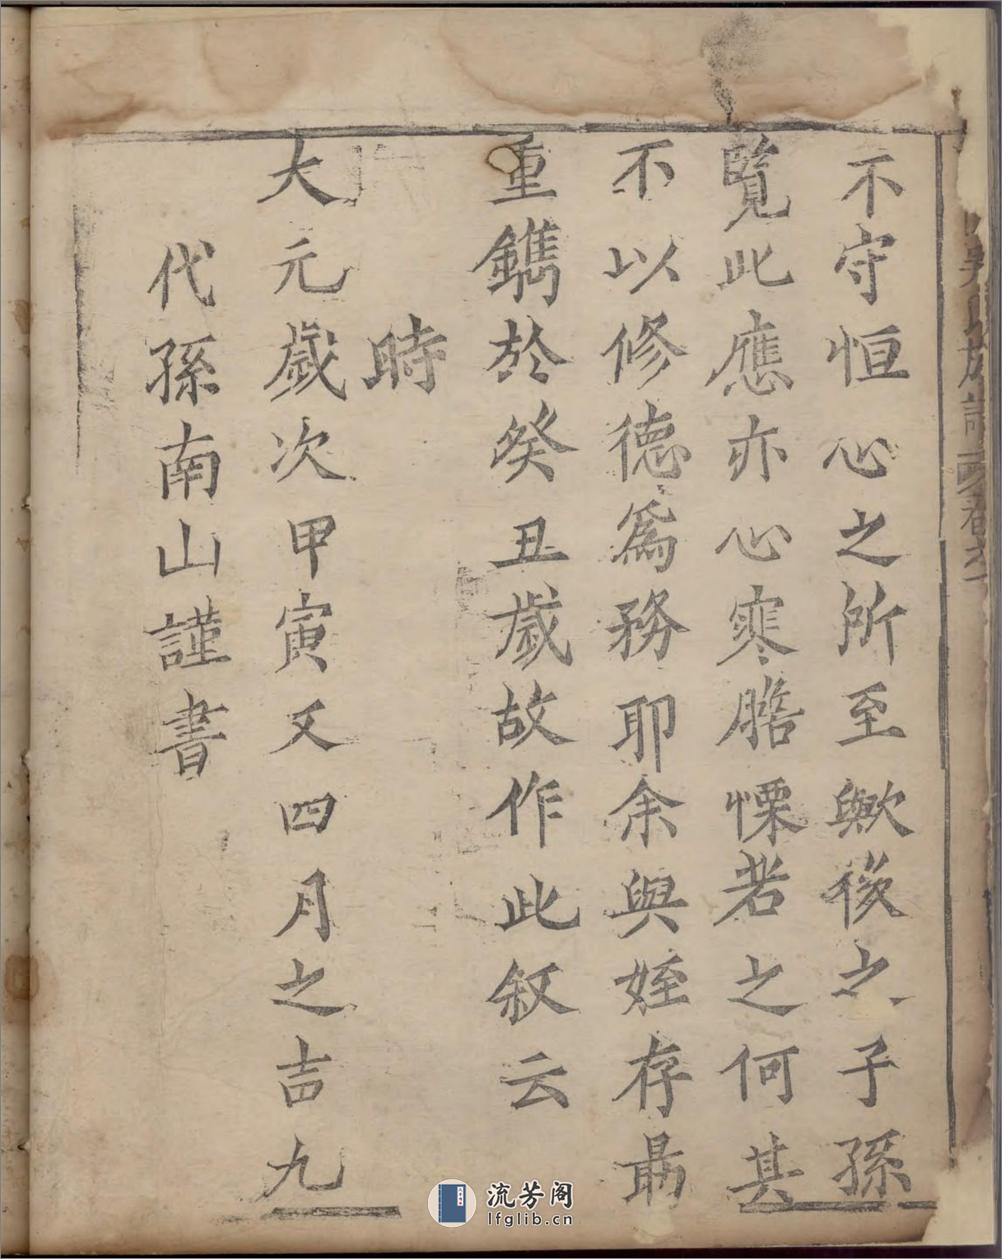 不守恒心之所至歟後之子孫
覧此應亦心寒膽慄者之何其
不以修德爲務耶余與姪存最
重鐫於癸丑歲故作此叙云
時
大元歲次甲寅又四月之吉九
代孫南山謹書
氏族譜
流芳阁
lfglib.cn